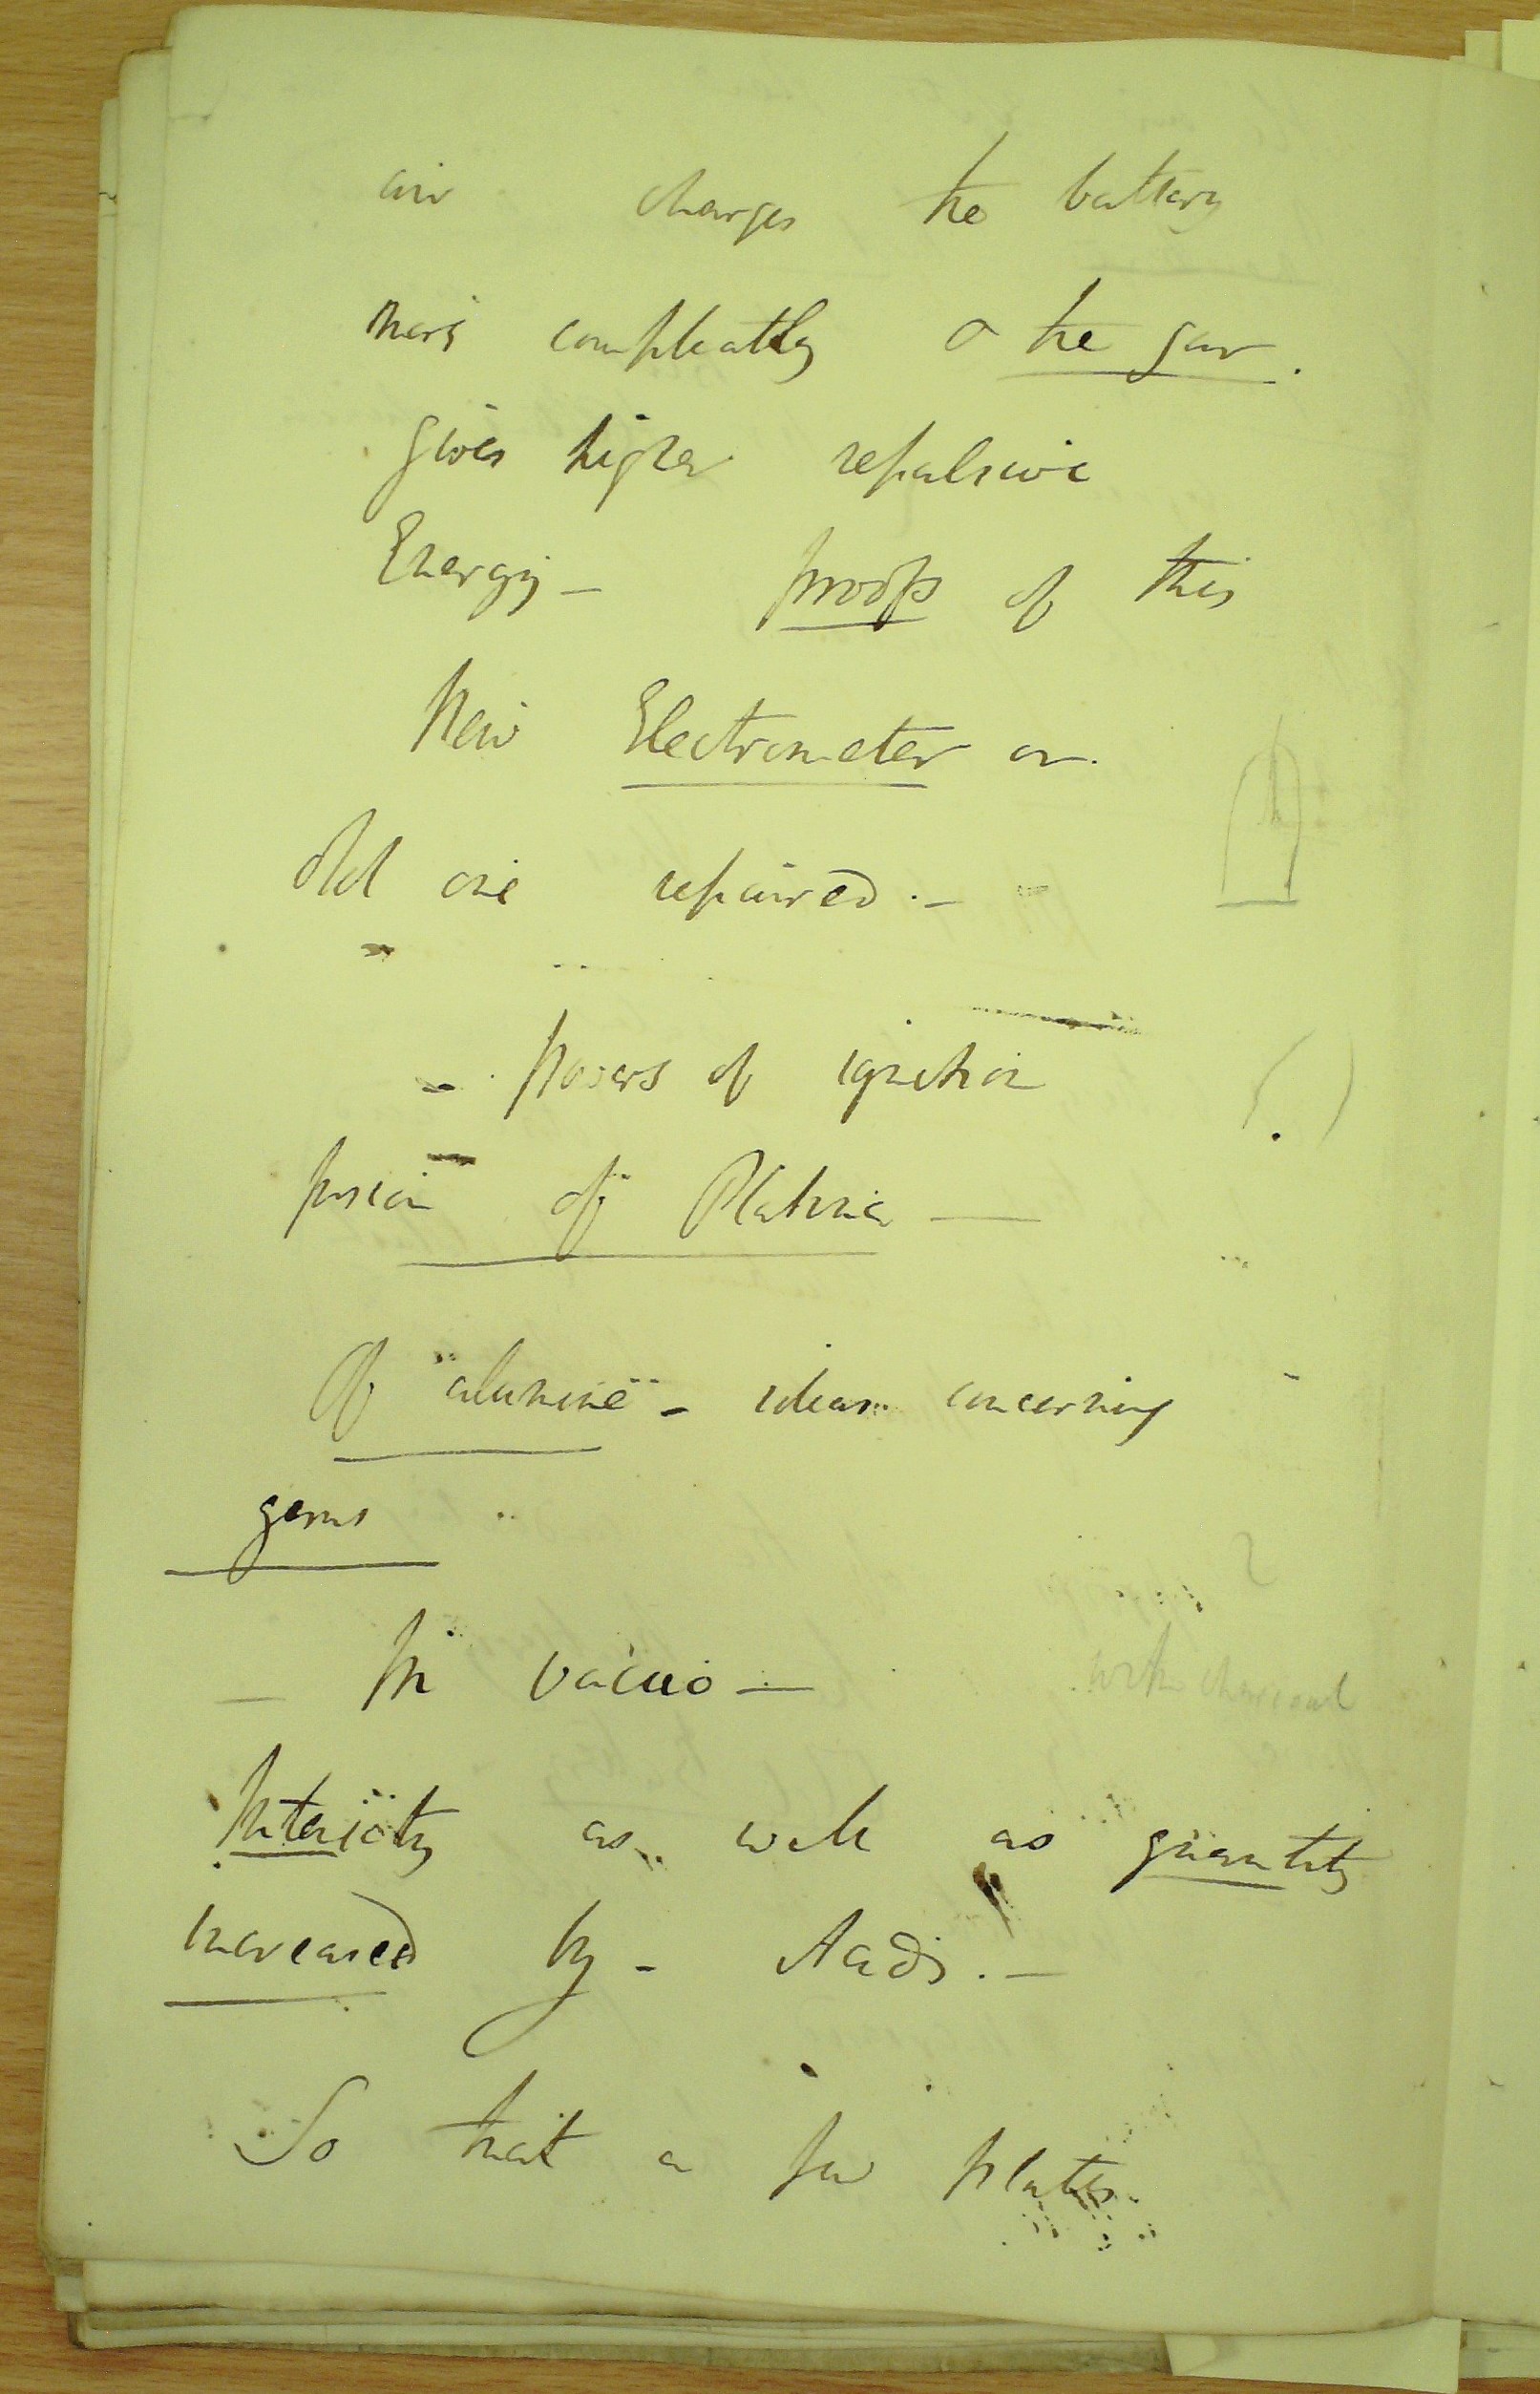 air charges the battery
more compleatly & the gas.
gives higher repulsive
Energy — proofs of this
New Electrometer or
old one repaired. —
– Powers of ignition
fusion of Platina —
Of alumine – ideas concerning
gems
— In vacuo —
with charcoal
Intensity as well as quantity
increased by – Acids. —
So that a few plates